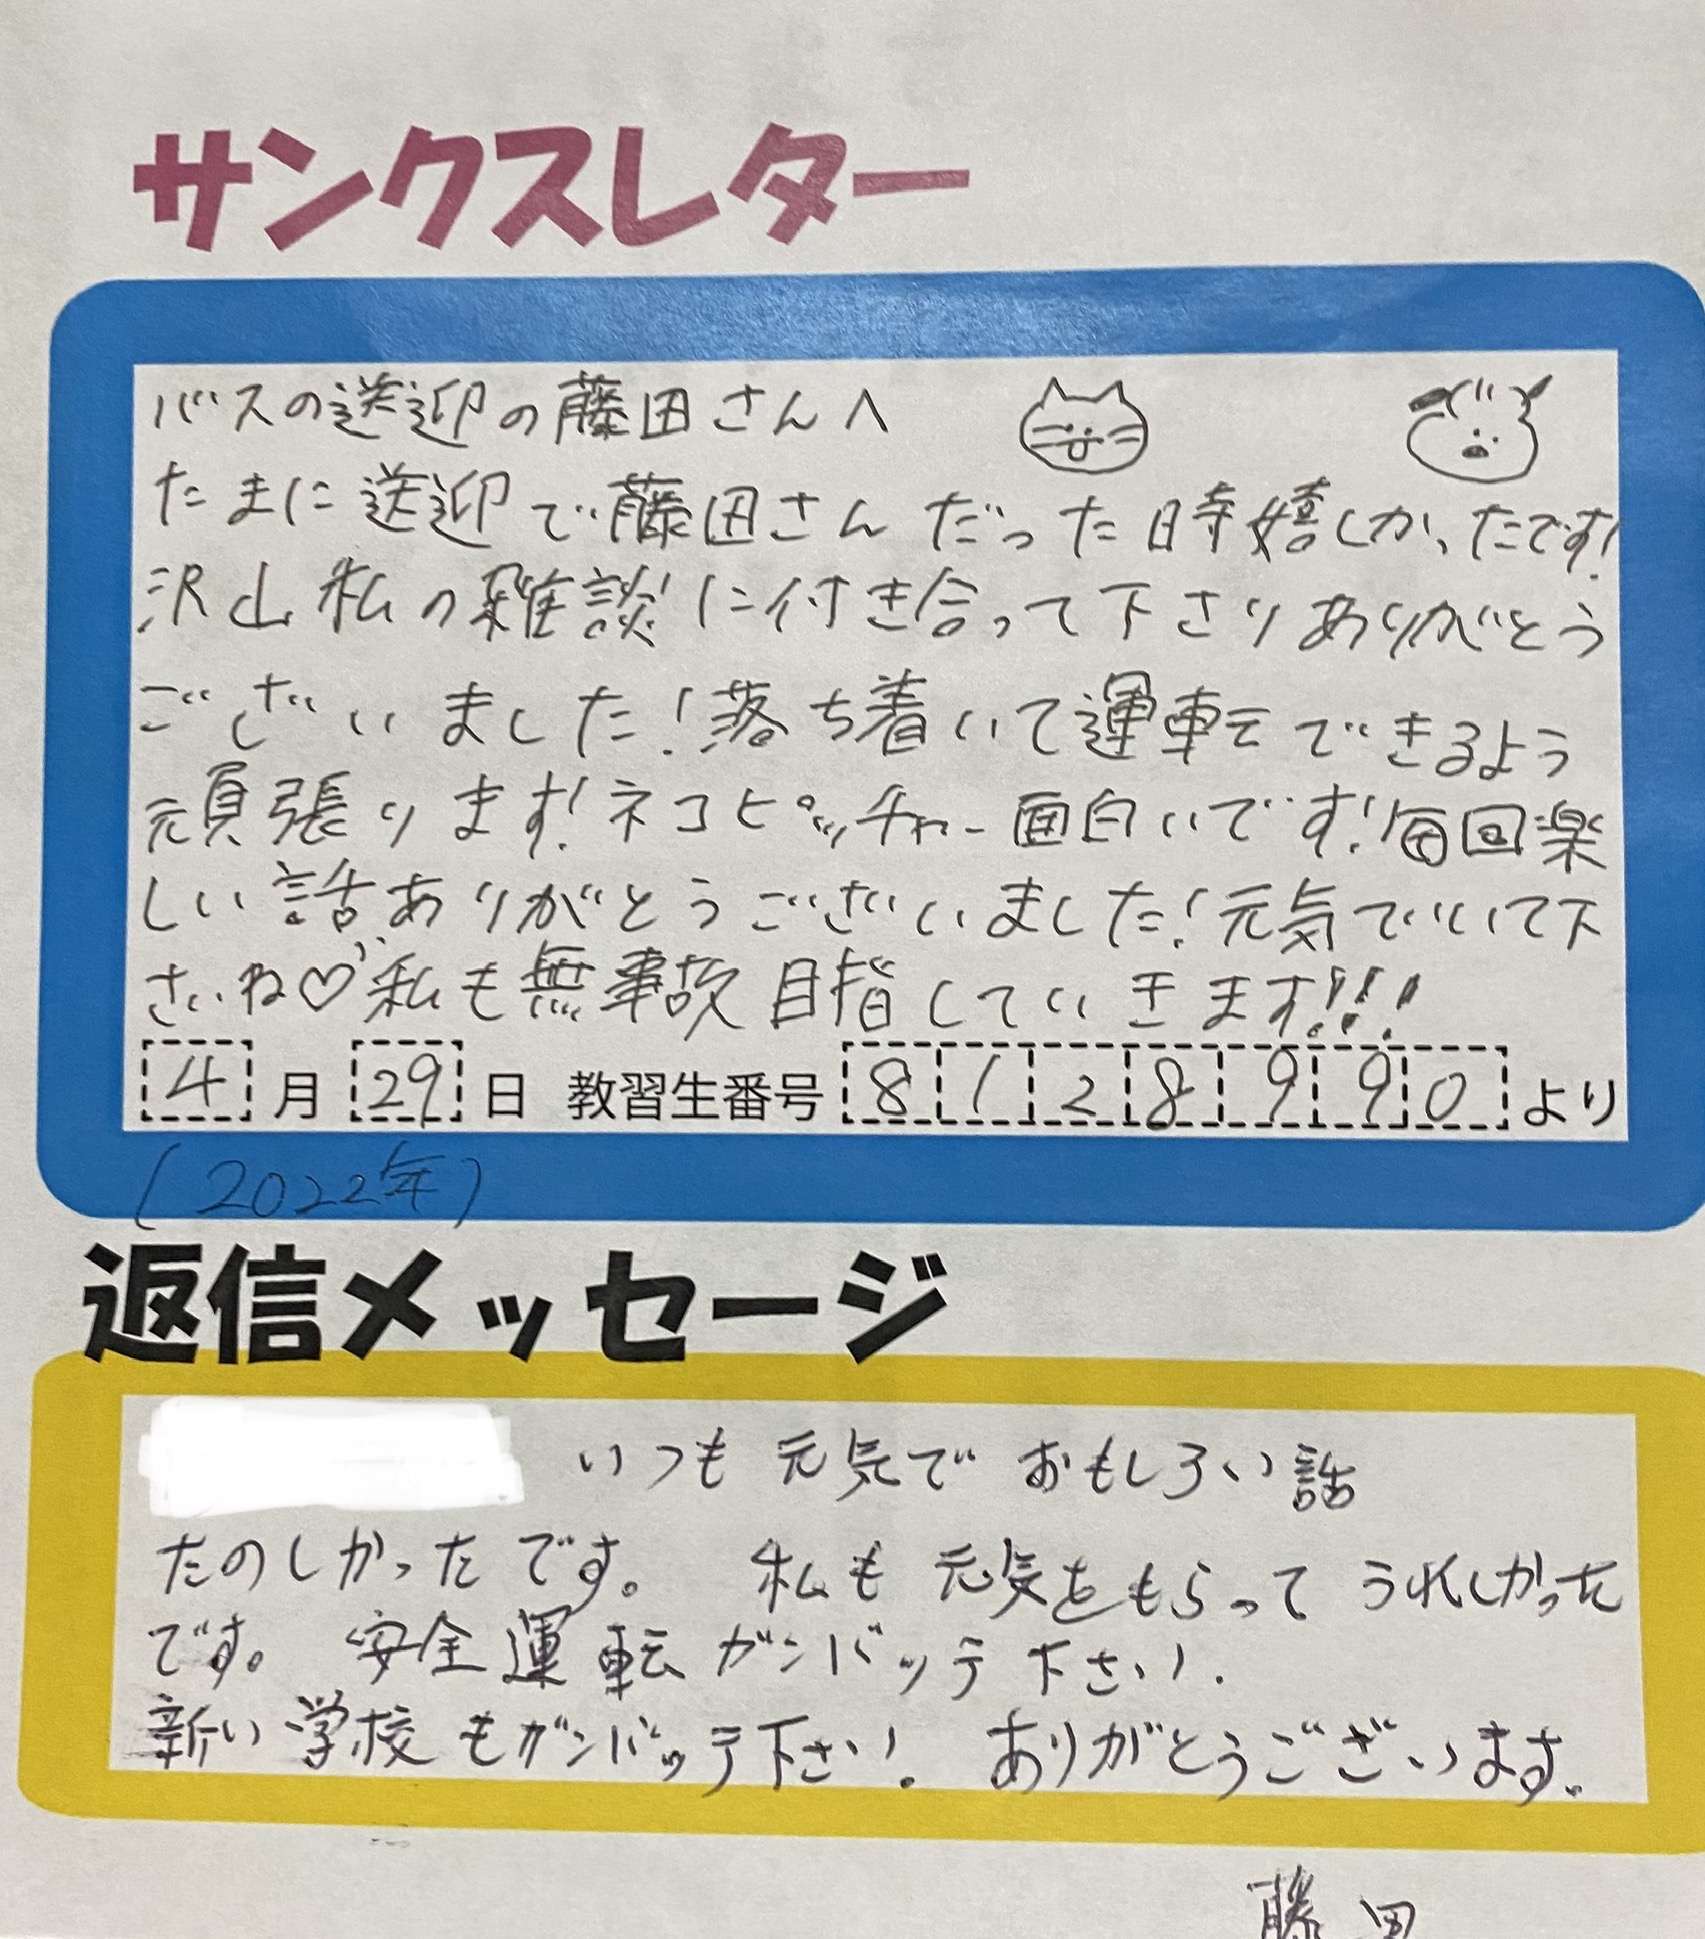 サンクスレター
バスの送迎の藤田さんへ
たまに送迎で藤田さんだった時嬉しかったです!
沢山私の雑談に付き合って下さりありがとう
ございました!落ち着いて運転できるよう
頑張ります!ネコピッチャー面白いです!毎回楽
しい話ありがとうございました!元気でいて下
さいね♡私も無事故目指していきます!!!
4月29日 教習生番号 8128990より
(2022年)
返信メッセージ
いつも元気でおもしろい話
たのしかったです。 私も元気をもらってうれしかった
です。 安全運転ガンバッテ下さい!
新い学校もガンバッテ下さい! ありがとうございます。
藤田